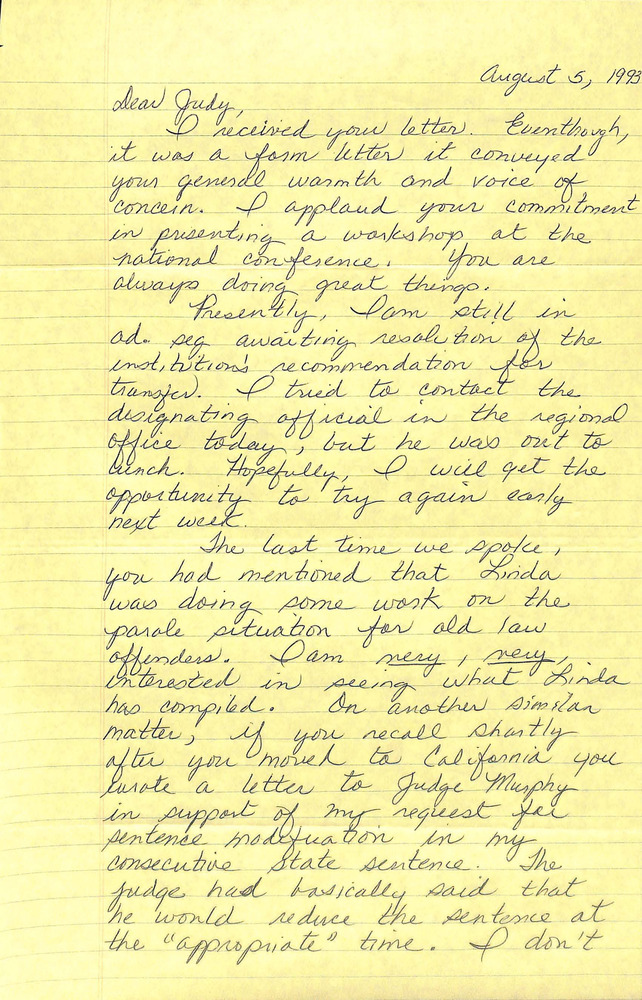 August 5, 1993
Dear Judy,
I received your letter. Eventhough,
it was a form letter it conveyed
your general warmth and voice of
concern. I applaud your commitment
in presenting a workshop at the
national conference. You are
always doing great things.
Presently, I am still in
ad. seg awaiting resolution of the
institution's recommendation for
transfer. I tried to contact the
designating official in the regional
office today, but he was out to
lunch. Hopefully, I will get the
opportunity to try again early
next week.
The last time we spoke,
you had mentioned that Linda
was doing some work on the
parole situation for old law
offenders. I am very, very,
interested in seeing what Linda
has compiled. On another similar
matter, if you recall shortly
after you moved to California you
wrote a letter to Judge Murphy
in support of my request for
sentence modification in my
consecutive State sentence. The
judge had basically said that
he would reduce the sentence at
the "appropriate" time. I don't